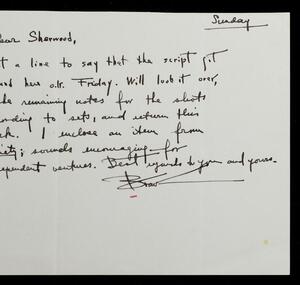 Sunday
ear Sherwood,
t a line to say that the script got
and here o.k. Friday. Will look it over,
ke remaining notes for the shots
ording to sets, and return this
ek. I inclose an item from
iety; sounds encouraging for
ependent ventures. Best regards to you and yours.